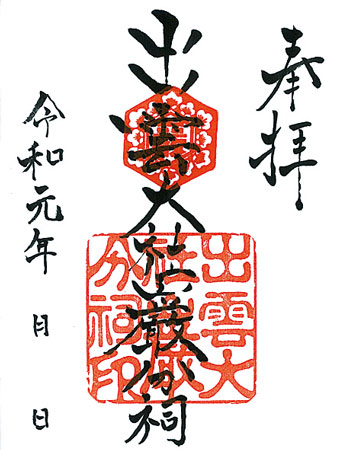 奉拝
出雲大社巌分祠
出雲大
社巌
分祠印
令和元年 月 日